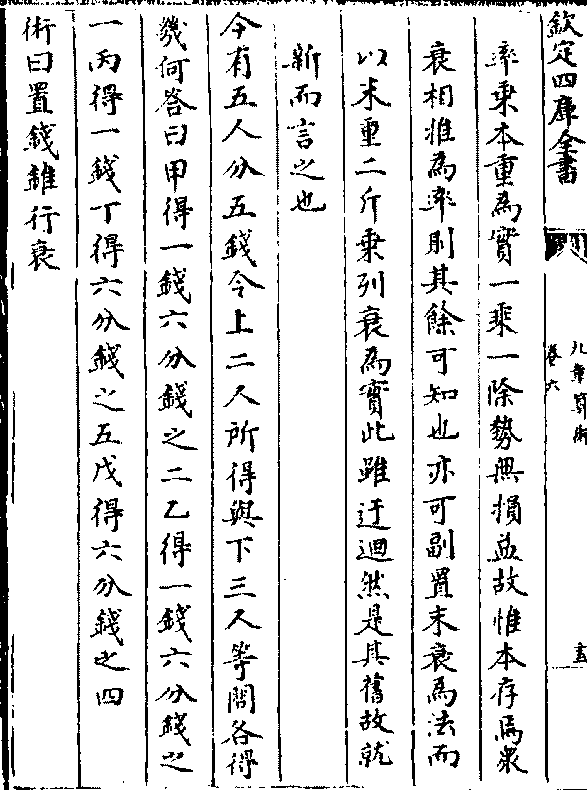 欽定四庫全書
九章算術
卷六
率乘本重為實一乘一除勢無損益故惟本存焉衆
衰相推為率則其餘可知也亦可副置末衰為法而
以末重二斤乘列衰為實此雖迂迴然是其舊故就
新而言之也
今有五人分五錢令上二人所得與下三人等問各得
幾何荅曰甲得一錢六分錢之二乙得一錢六分錢之
一丙得一錢丁得六分錢之五戊得六分錢之四
術曰置錢錐行衰